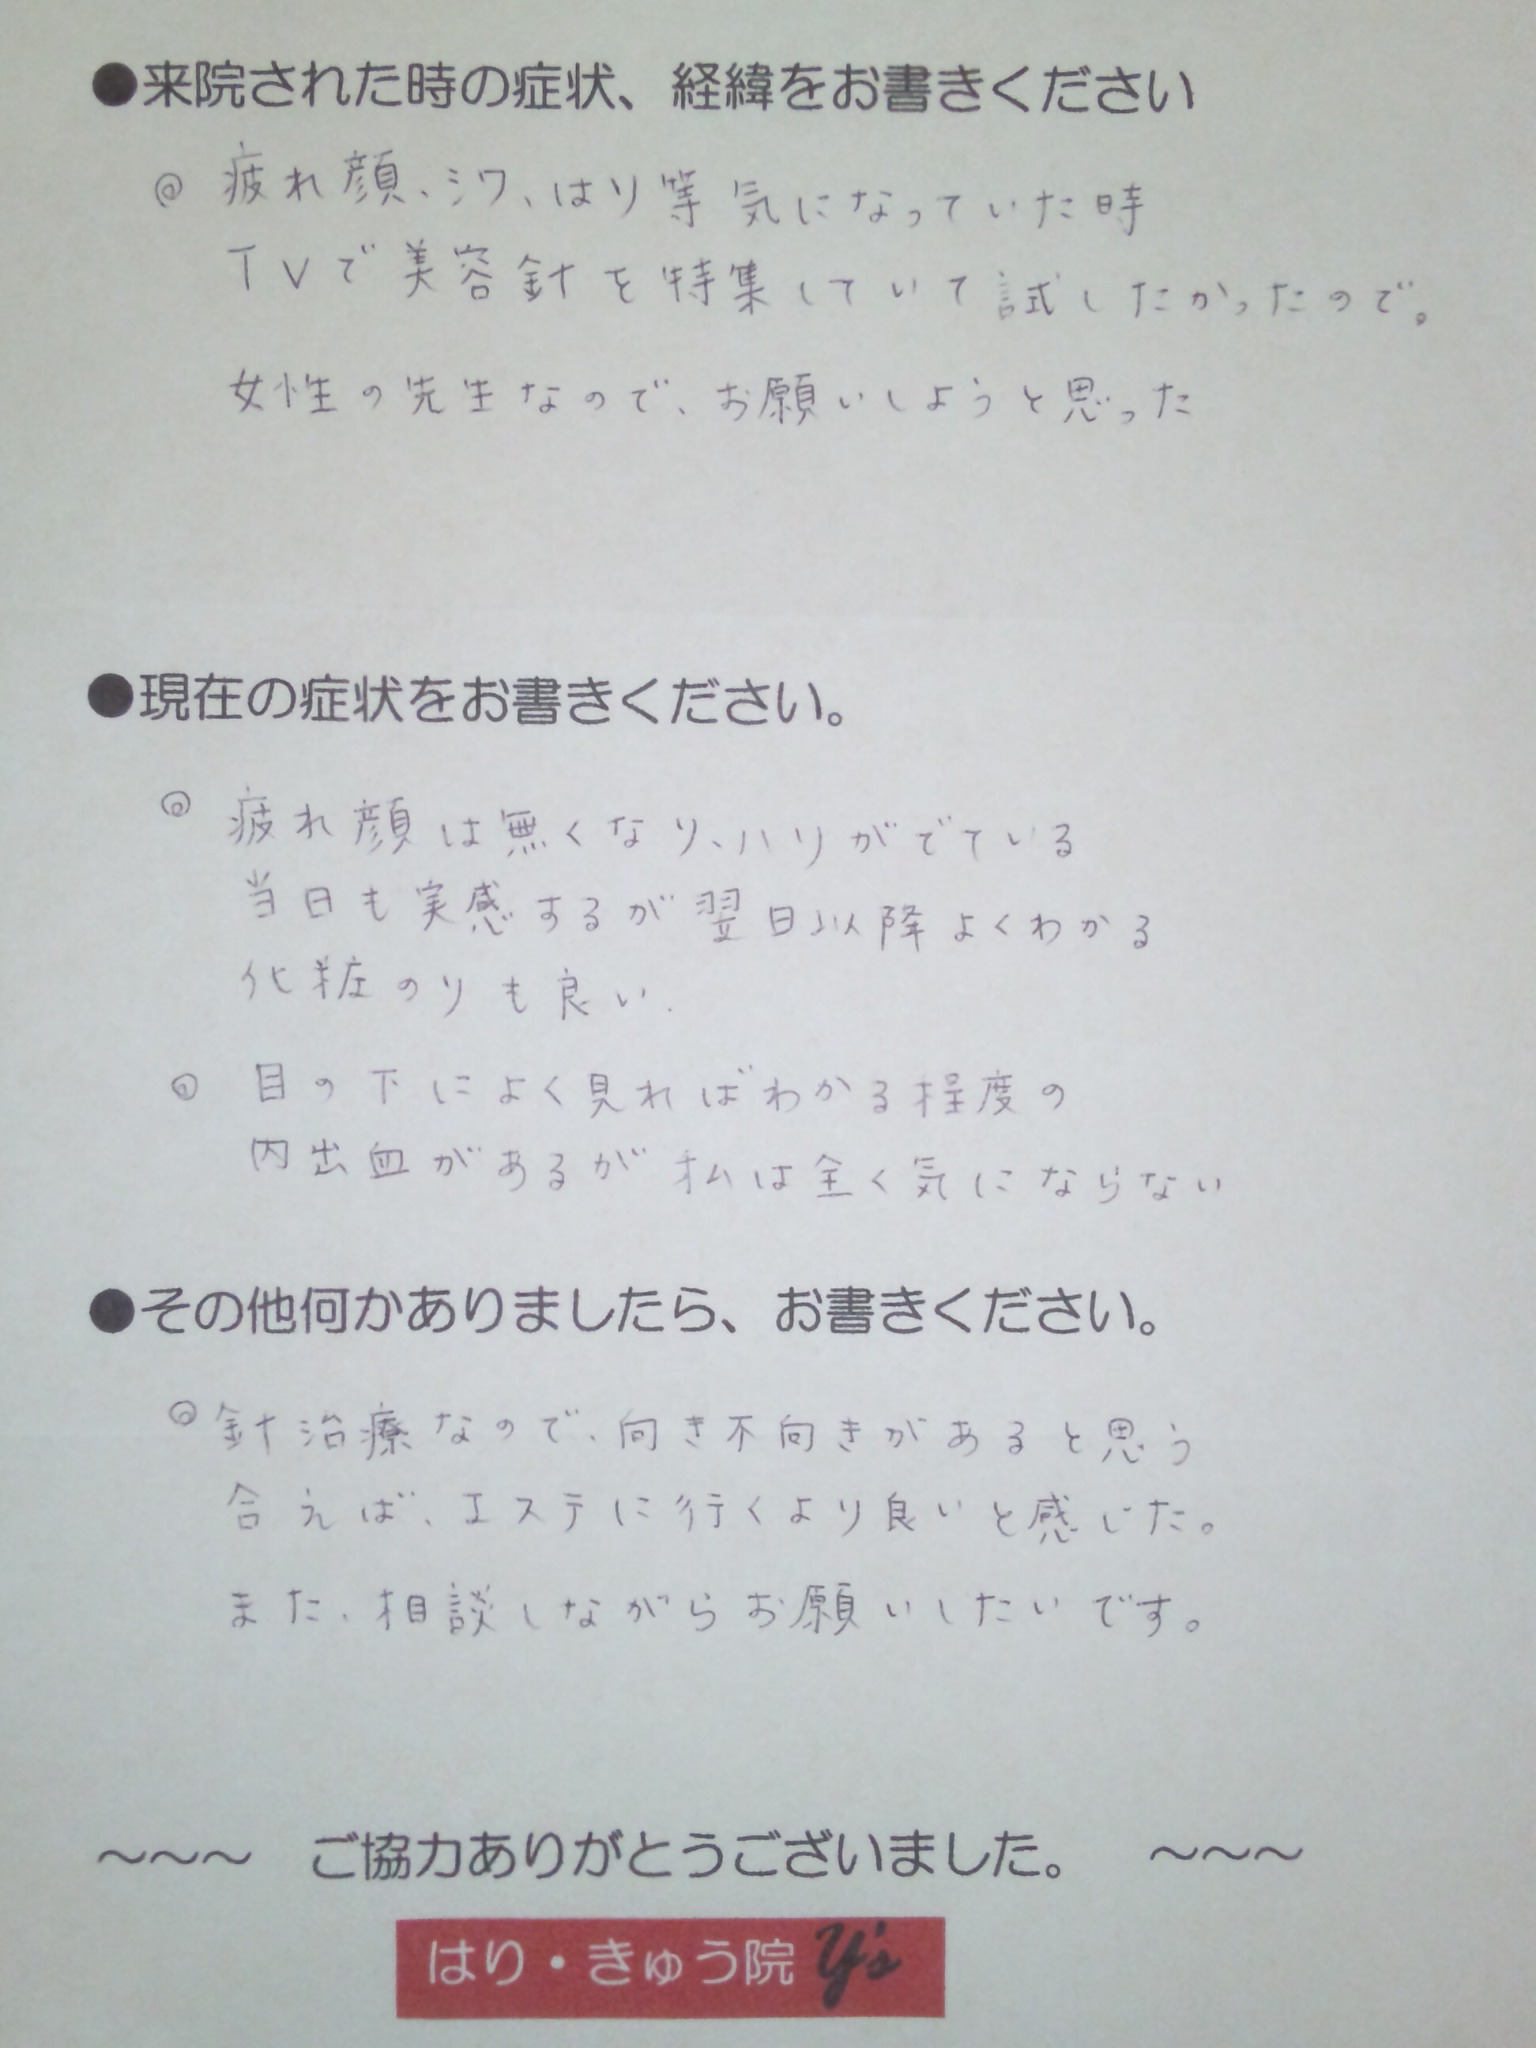 ●来院された時の症状、経緯をお書きください
◎ 疲れ顔、シワ、はり等気になっていた時
TVで美容針を特集していて試したかったので。
女性の先生なので、お願いしようと思った
●現在の症状をお書きください。
◎ 疲れ顔は無くなり、ハリがでている
当日も実感するが翌日以降よくわかる
化粧のりも良い.
◎ 目の下によく見ればわかる程度の
内出血があるが私は全く気にならない
●その他何かありましたら、お書きください。
◎ 針治療なので、向き不向きがあると思う
合えば、エステに行くより良いと感じた。
また、相談しながらお願いしたいです。
～～～ ご協力ありがとうございました。 ～～～
はり・きゅう院 Y's